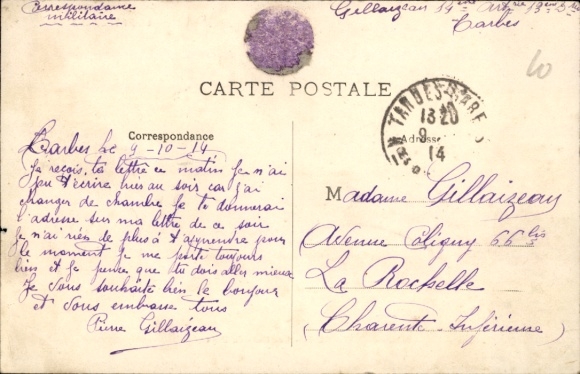 Correspondance
militaire
Gillaizeau 14ème Artrie 13ème Bie
Tarbes
CARTE POSTALE
TARBES-GARE
13 20
9
14
Correspondance
Adresse
Tarbes le 9-10-14
Je reçois ta lettre ce matin Je n'ai
pu t'écrire hier au soir car j'ai
changer de chambre Je te donnerai
l'adresse sur ma lettre de ce soir
Je n'ai rien de plus à t'apprendre pour
le moment Je me porte toujours
bien et Je pense que tu dois aller mieux
Je vous souhaite bien le bonjour
et vous embrasse tous
Pierre Gillaizeau
Madame Gillaizeau
Avenue Coligny 66 bis
La Rochelle
(Charente-Inférieure)